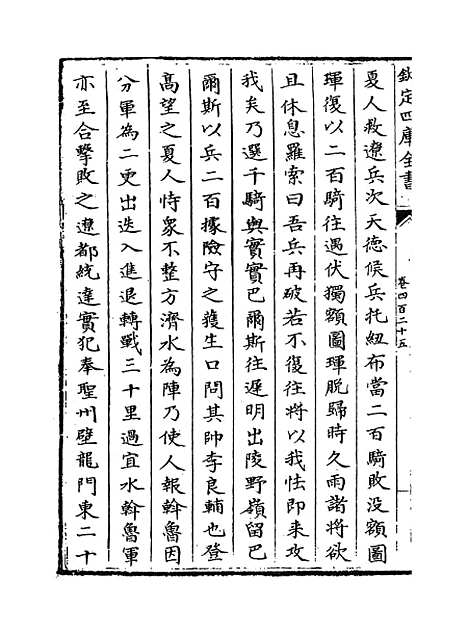 欽定四庫全書
卷四百二十五
夏人救遼兵次天德候兵托紐布當二百騎敗没額圖
琿復以二百騎往遇伏獨額圖琿脱歸時久雨諸將欲
且休息羅索曰吾兵再破若不復往將以我怯即来攻
我矣乃選千騎與實實巴爾斯往遲明出陵野嶺留巴
爾斯以兵二百據險守之獲生口問其帥李良輔也登
高望之夏人恃衆不整方濟水為陣乃使人報斡魯因
分軍為二更出迭入進退轉戰三十里過宜水斡魯軍
亦至合擊敗之遼都統達實犯奉聖州壁龍門東二十